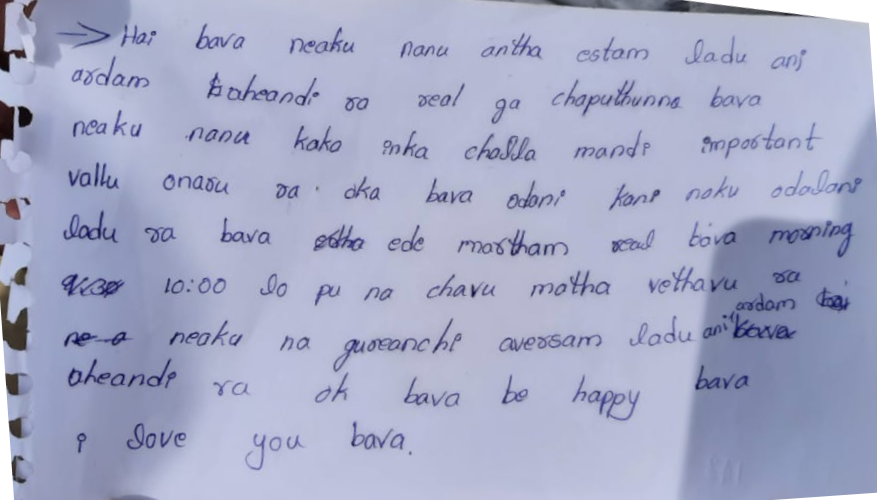 → Hai bava neaku nanu antha estam ladu ani
ardam aheandi ra real ga chaputhunna bava
neaku nanu kako inka challa mandi important
vallu onaru ra oka bava odani kani naku odalani
ladu ra bava ede martham real bava morning
10:00 lo pu na chavu matha vethavu ra
neaku na gureanchi aversam ladu ani ardam
aheandi ra ok bava be happy bava
i love you bava.